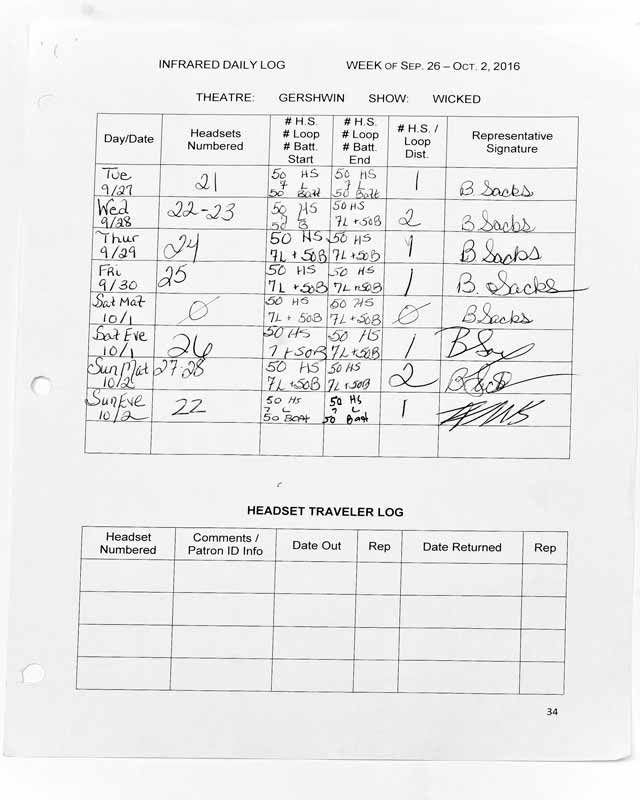 INFRARED DAILY LOG WEEK OF SEP. 26 – OCT. 2, 2016
THEATRE: GERSHWIN SHOW: WICKED
Day/Date Headsets Numbered # H.S. # Loop # Batt. Start # H.S. # Loop # Batt. End # H.S. / Loop Dist. Representative Signature
Tue 9/27 21 50 HS 7 L 50 Batt 50 HS 7 L 50 Batt 1 B Sacks
Wed 9/28 22-23 50 HS 7 50 B 50 HS 7L + 50B 2 B Sacks
Thur 9/29 24 50 HS 7L + 50B 50 HS 7L + 50B 1 B Sacks
Fri 9/30 25 50 HS 7L + 50B 50 HS 7L + 50B 1 B. Sacks
Sat Mat 10/1 Ø 50 HS 7L + 50B 50 HS 7L + 50B Ø B Sacks
Sat Eve 10/1 26 50 HS 7 + 50B 50 HS 7L + 50B 1
Sun Mat 10/2 27-28 50 HS 7L + 50B 50 HS 7L + 50B 2
Sun Eve 10/2 22 50 HS 7 L 50 BATT 50 HS 7 L 50 Batt 1
HEADSET TRAVELER LOG
Headset Numbered Comments / Patron ID Info Date Out Rep Date Returned Rep
34